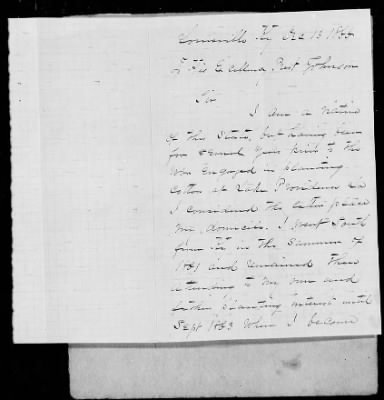 Louisville Ky Dec 13 1865
To His Excellency Prest Johnson
Sir
I am a native
of this State, but having been
for several years prior to the
War engaged in planting
Cotton at Lake Providence La
I considered the latter place
my domicil. I went South
from Ky in the Summer of
1861 and remained there
attending to my own and
father planting interest until
Sept 1863 when I became